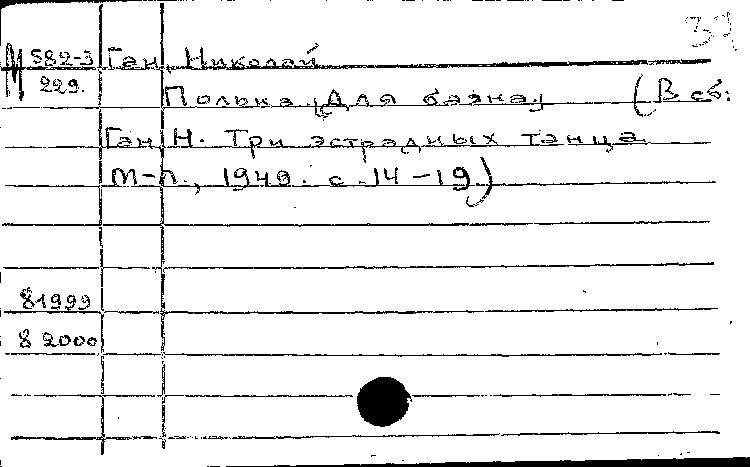 37
М 582-3 Ган, Николай
229.
Полька [Для баяна] (В сб.:
Ган, Н. Три эстрадных танца
М-Л., 1949. с. 14-19)
81999
82000